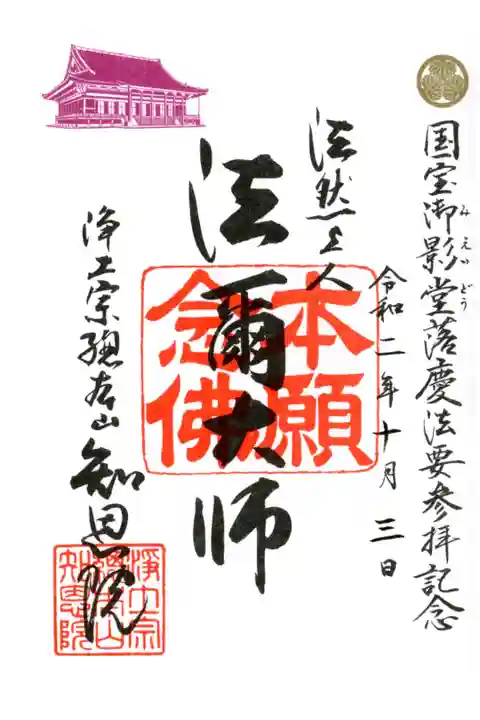 国宝御影堂落慶法要参拝記念
みえいどう
令和二年十月三日
法然上人
法爾大師
本願
念佛
浄土宗總本山
知恩院
浄土宗
總本山
知恩院